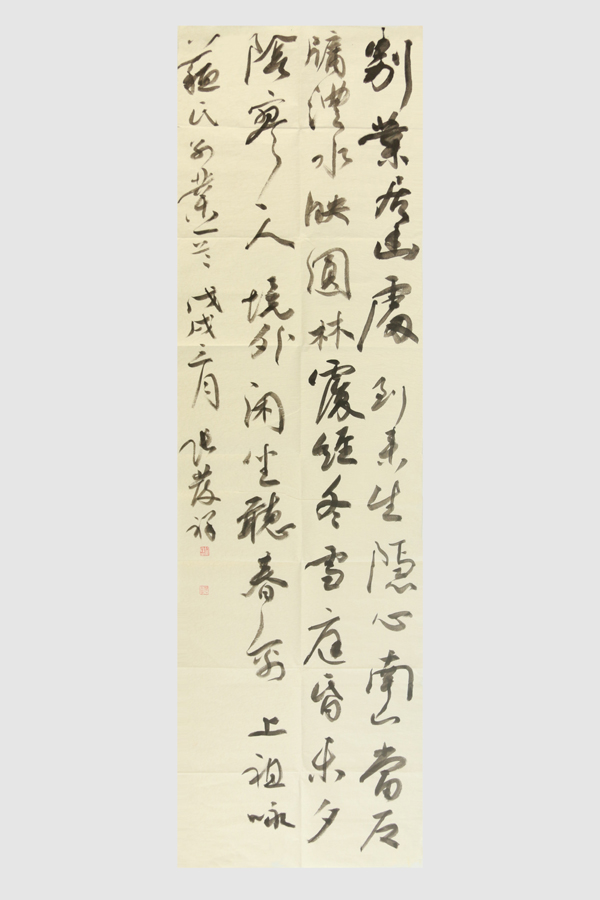 别業居幽處到来生隱心南山當户
牖澧水映園林覆經冬雪庭昏未夕
陰寥々人境外闲坐聽春禽 上祖咏
蘇氏别業一首 戊戌三月 张發祥